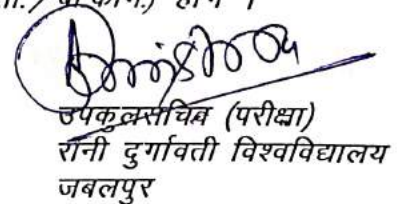 होंगे ।
उपकुलसचिव (परीक्षा)
रानी दुर्गावती विश्वविद्यालय
जबलपुर